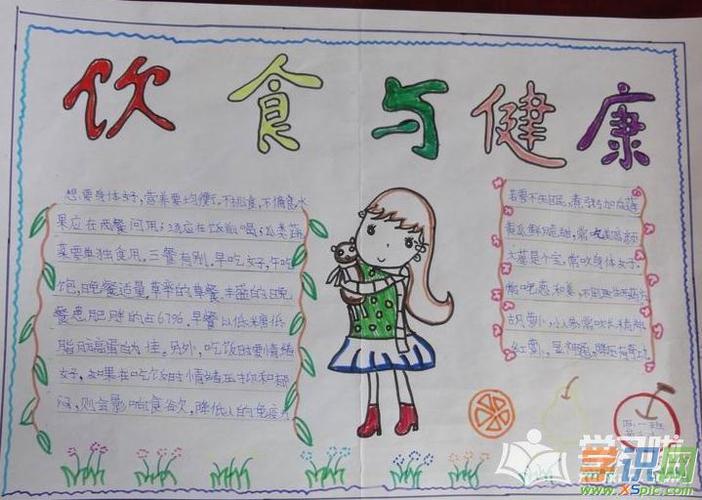 饮食与健康
想要身体好,营养要均衡,不挑食,不偏食,水
果应在两餐间用;汤应在饭前喝;瓜类蔬
菜要单独食用。三餐有别。早吃好,午吃
饱,晚餐适量草率的早餐丰盛的晚
餐患肥胖的占67%。早餐以低糖低
脂肪高蛋白为佳。另外,吃饭时要情绪
好,如果在吃饭时情绪压抑和郁
闷,则会影响食欲,降低人的免疫力
若要不失眠,煮粥加白莲
黄瓜
大蒜是个宝,常吃身体好
常吃葱和姜,不
胡萝卜,小人参,常吃长精神
红萝卜,显神通,降压
四一班
学识网
www.XSpic.com